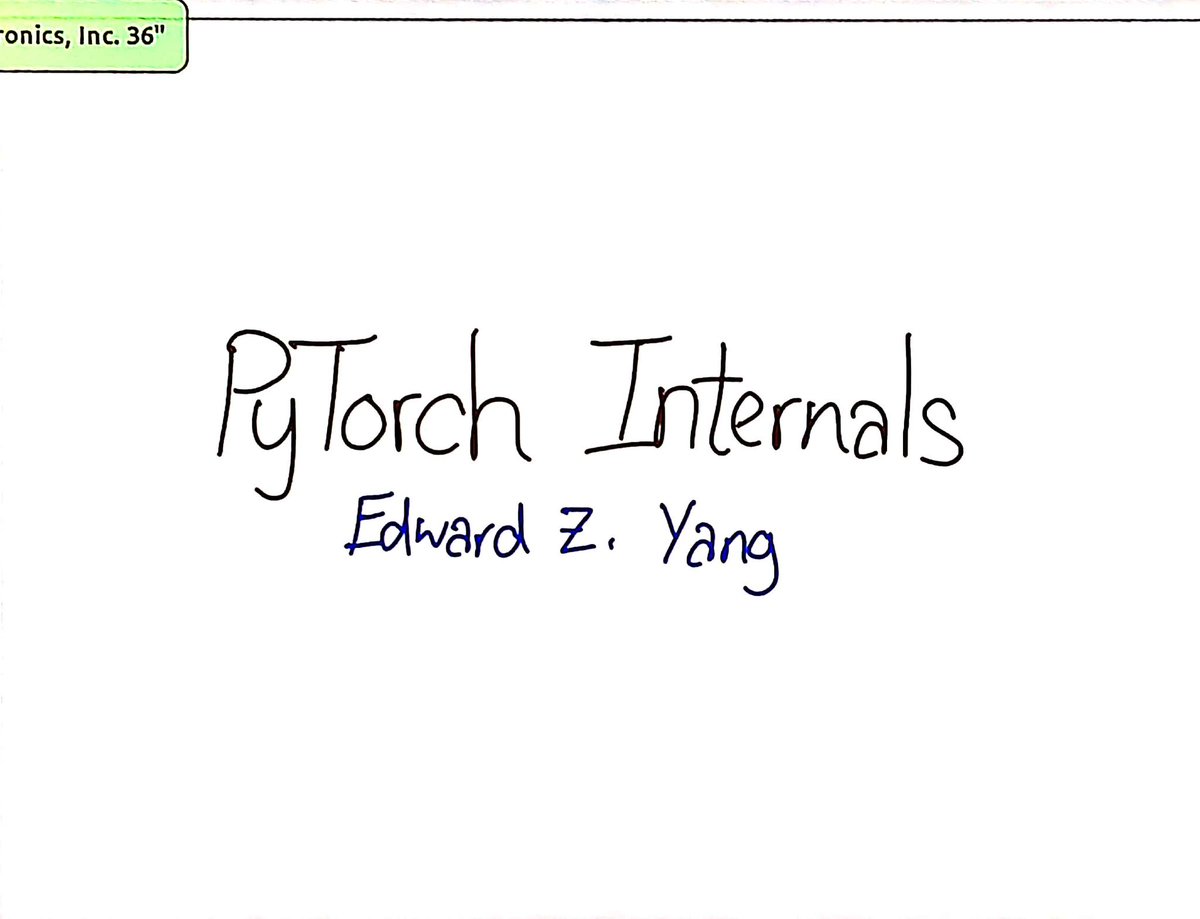 ronics, Inc. 36"
PyTorch Internals
Edward Z. Yang